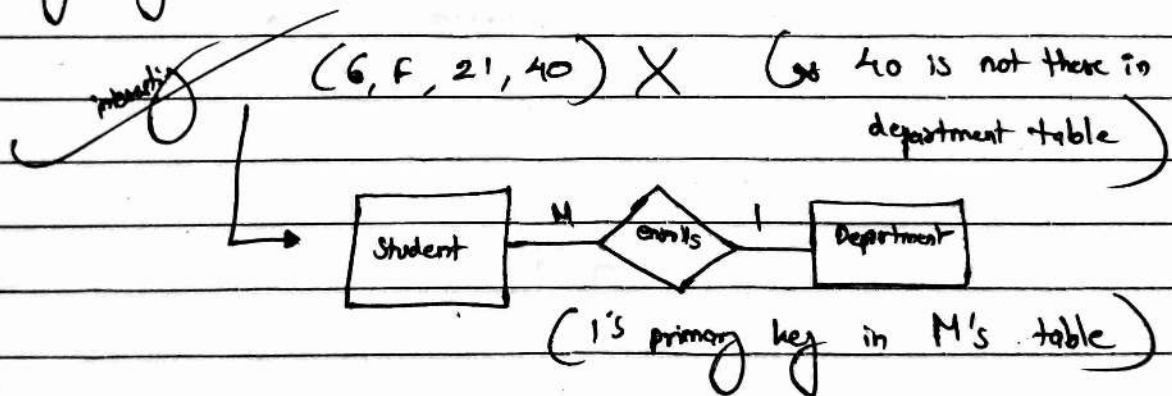 (6, F, 21, 40) X (as 40 is not there in
department table)
Student M enrolls 1 Department
(1's primary key in M's table)